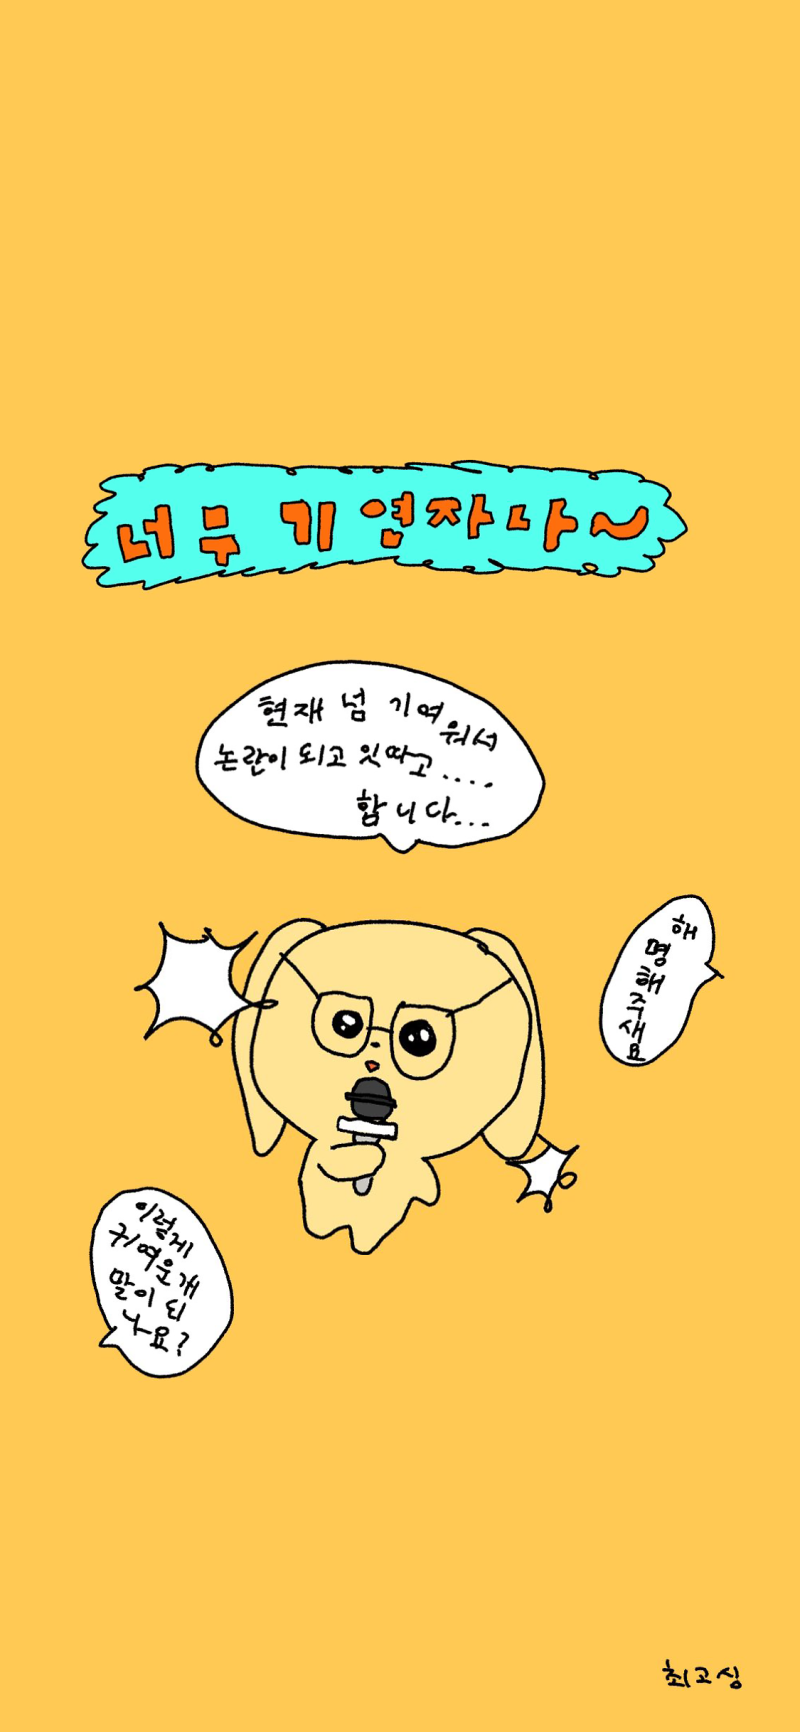 너무 기엽자나~
현재 넘 기여워서
논란이 되고 잇따고....
합니다...
해
명
해
주
새
요
이렇게
귀여운개
말이 되
나요?
최고심